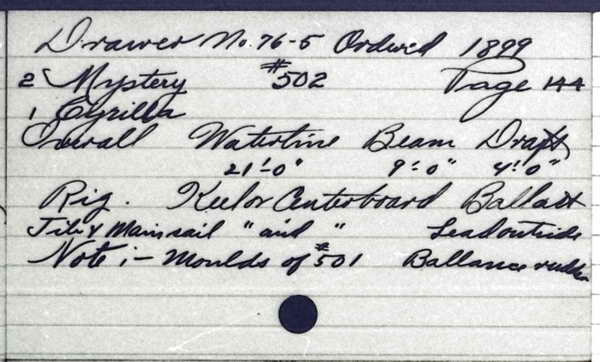 Drawer No. 76-5 Ordered 1899
2 Mystery #502 Page 144
1 Cyrilla
Overall Waterline Beam Draft
21'-0" 9'-0" 4'-0"
Rig. Keel or Centerboard Ballast
Jib & Mainsail " and " Lead outside
Note :- Moulds of #501 Ballance rudder